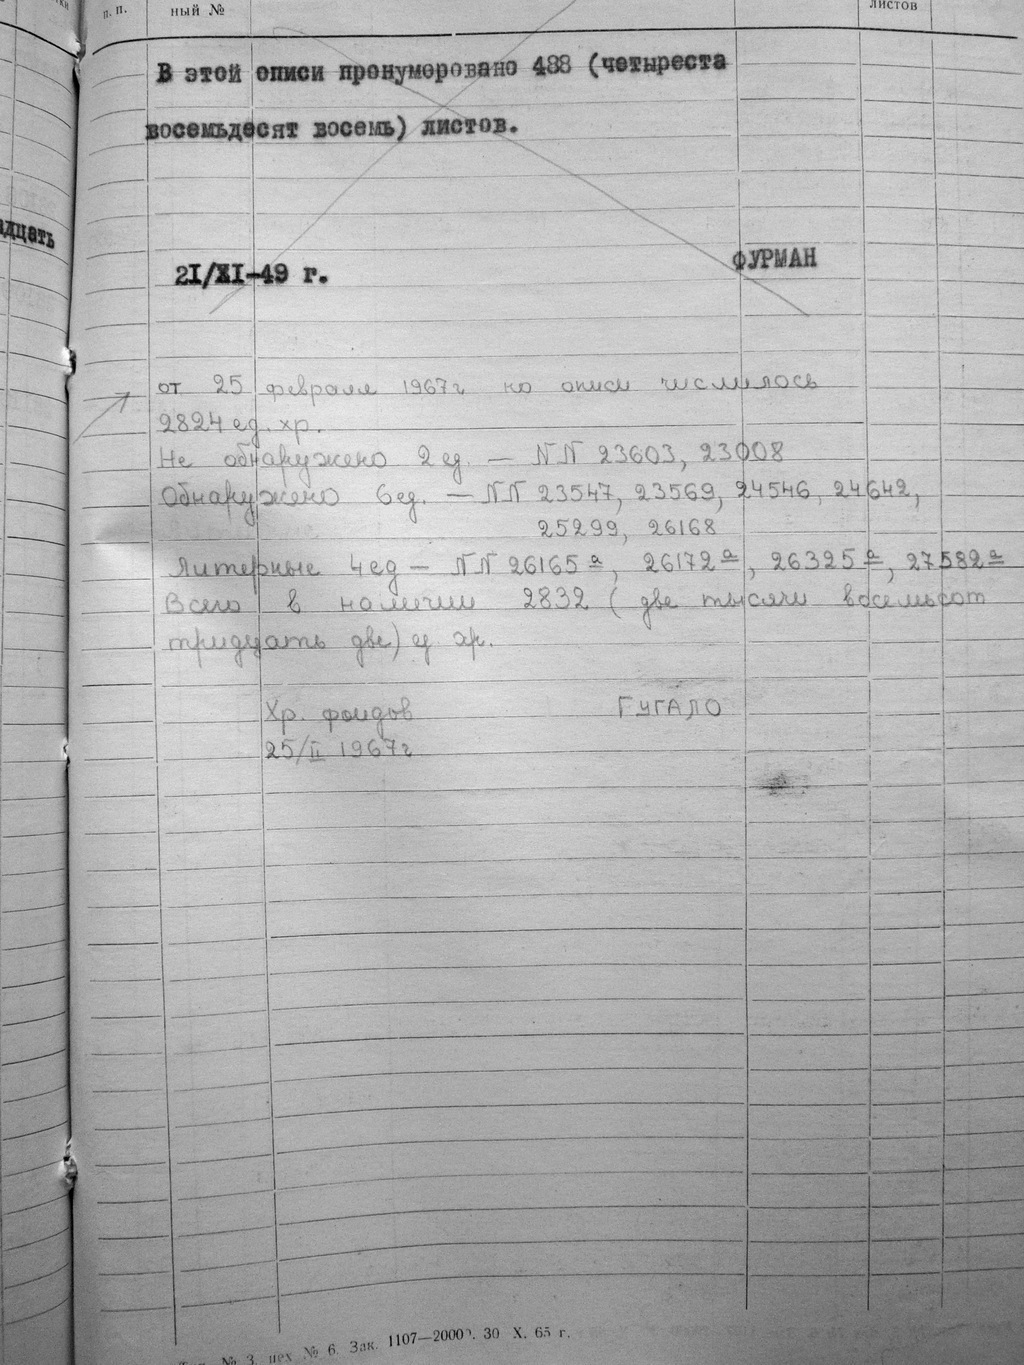 п. п.
ный №
листов
В этой описи пронумеровано 488 (четыреста
восемьдесят восемь) листов.
адцать
21/XI-49 г.
ФУРМАН
от 25 февраля 1967г по описи числилось
2824 ед. хр.
Не обнаружено 2 ед. — NN 23603, 23008
Обнаружено 6 ед. — NN 23547, 23569, 24546, 24642,
25299, 26168
Литерные 4 ед — NN 26165а, 26172а, 26325а, 27582а
Всего в наличии 2832 (две тысячи восемьсот
тридцать две) ед хр.
Хр. фондов
ГУГАЛО
25/II 1967г
№ 3, цех № 6. Зак. 1107—2000. 30 X. 65 г.